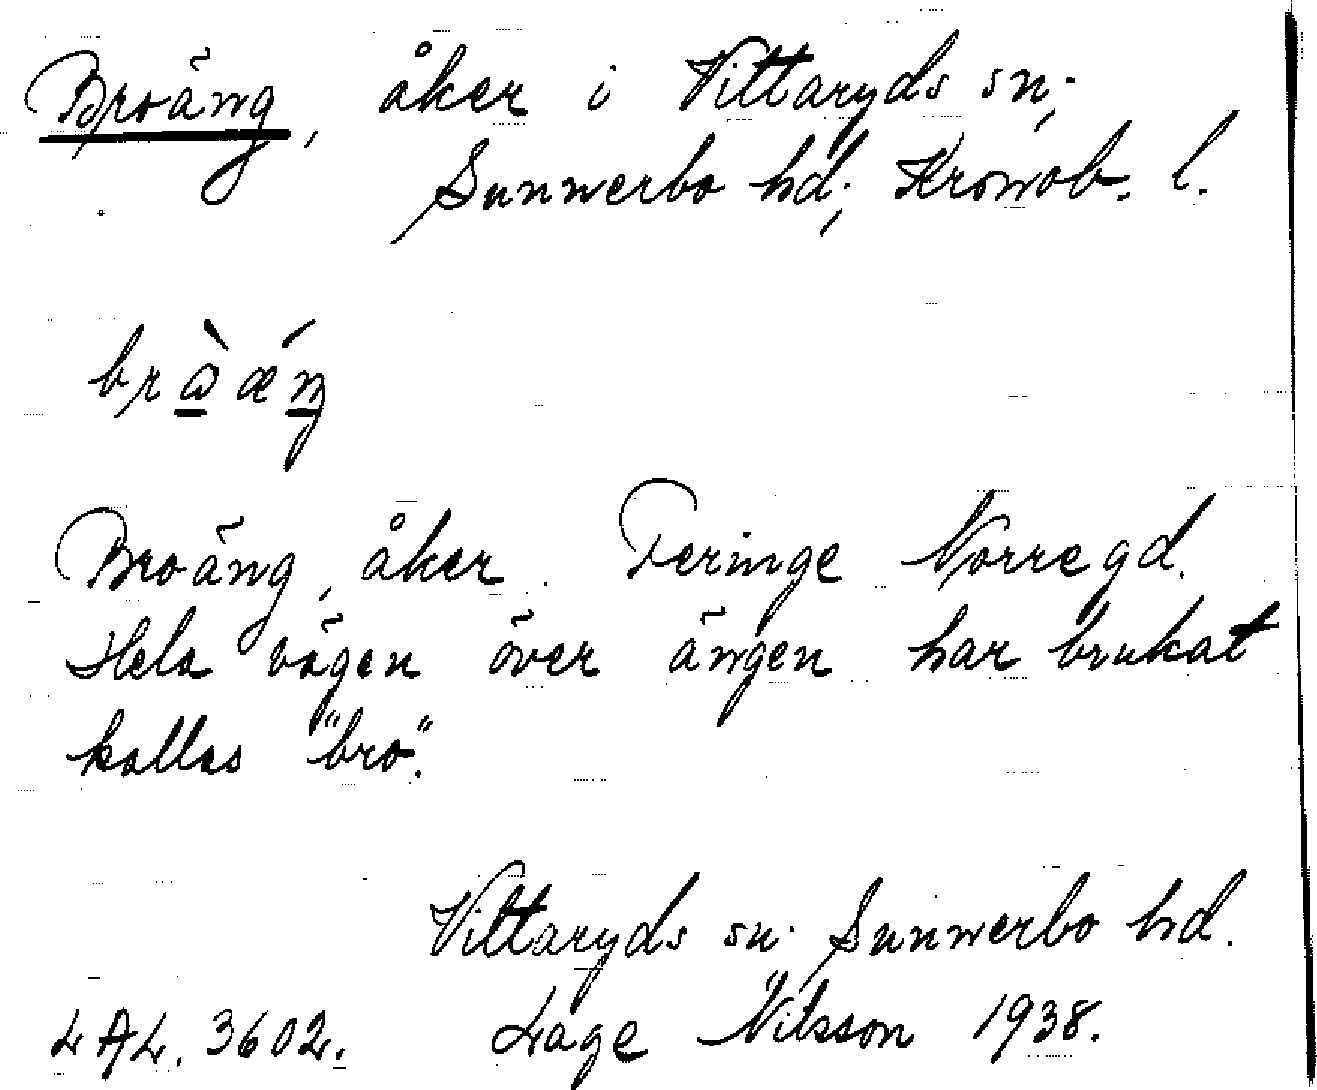 Broäng, åker i Vittaryds sn,
Sunnerbo hd, Kronob. l.
Broäng, åker. Feringe Norregd.
Hela vägen över ängen har brukat
kallas "bro".
Vittaryds sn. Sunnerbo hd.
LAL. 3602. Lage Nilsson 1938.